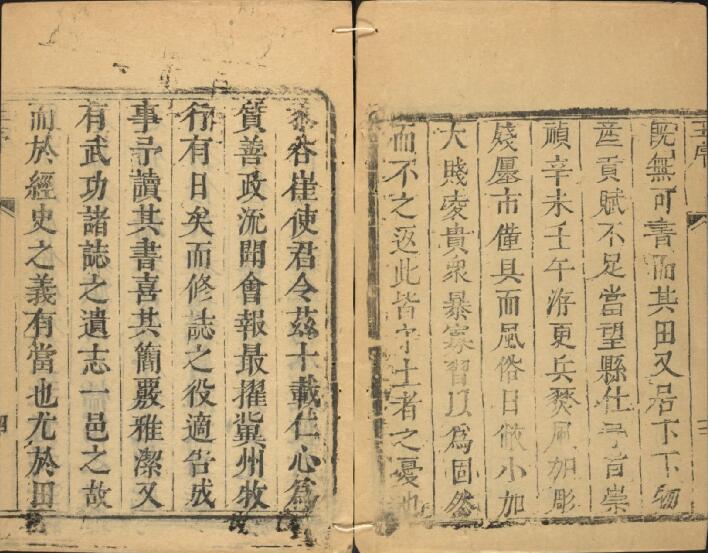 既無可書而其田又居下下物
産貢賦不足當望縣仕予昔崇
禎辛未壬午游更兵焚風加彫
殘廛市僅具而風俗日敝小加
大賤凌貴衆暴寡習以爲固然
而不之返此皆守土者之憂也
谷崔使君令茲十載仁心爲
質善政流聞會報最擢冀州牧
行有日矣而修誌之役適告成
事予讀其書喜其簡覈雅潔又
有武功諸誌之遺志一邑之故
而於經史之義有當也尤於田